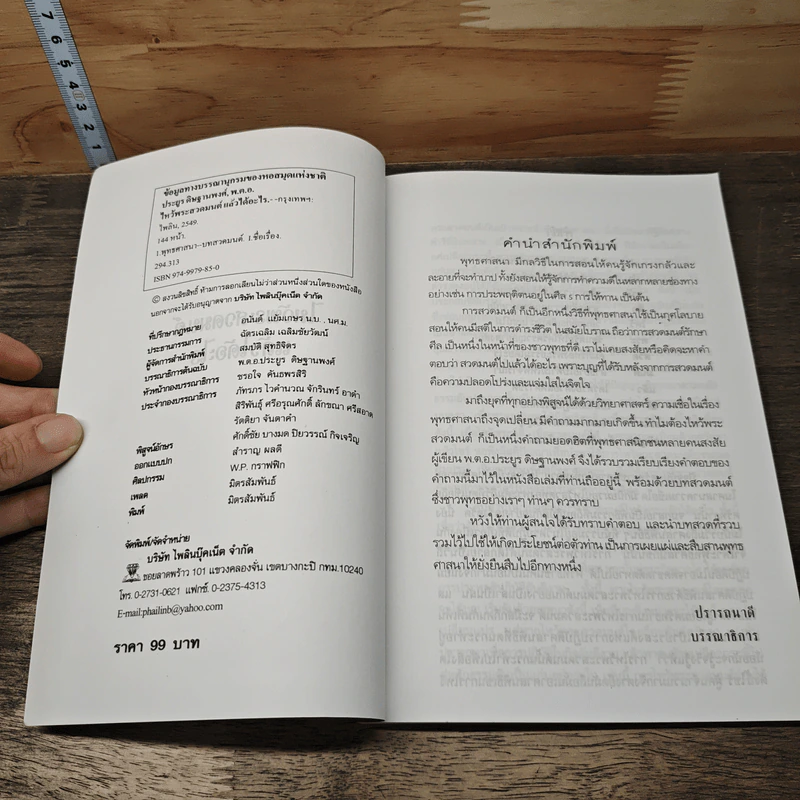 7
6
5
4
3
2
1
ข้อมูลทางบรรณานุกรมของหอสมุดแห่งชาติ
ประยูร ดิษฐานพงศ์, พ.ต.อ.
ไหว้พระสวดมนต์ แล้วได้อะไร.--กรุงเทพฯ:
ไพลิน, 2549.
144 หน้า.
1.พุทธศาสนา--บทสวดมนต์. I.ชื่อเรื่อง.
294.313
ISBN 974-9979-85-0
© สงวนลิขสิทธิ์ ห้ามการลอกเลียนไม่ว่าส่วนหนึ่งส่วนใดของหนังสือ
นอกจากจะได้รับอนุญาตจาก บริษัท ไพลินบุ๊คเน็ต จำกัด
ที่ปรึกษากฎหมาย อนันต์ แย้มเกษร น.บ. , นศ.ม.
ประธานกรรมการ ฉัตรเฉลิม เฉลิมชัยวัฒน์
ผู้จัดการสำนักพิมพ์ สมบัติ สุทธิจิตร
บรรณาธิการต้นฉบับ พ.ต.อ.ประยูร ดิษฐานพงศ์
หัวหน้ากองบรรณาธิการ ชรอใจ คันธพรสิริ
ประจำกองบรรณาธิการ ภัทรภร ไวคำนวณ จักรินทร์ อาดำ
สิริพันธุ์ ศรีอรุณศักดิ์ ลักขณา ศรีสอาด
รัตติยา จันดาคำ
พิสูจน์อักษร ศักดิ์ชัย บางมด ปิยวรรณ์ กิจเจริญ
ออกแบบปก สำราญ ผลดี
ศิลปกรรม W.P. กราฟฟิก
เพลต มิตรสัมพันธ์
พิมพ์ มิตรสัมพันธ์
จัดพิมพ์/จัดจำหน่าย
บริษัท ไพลินบุ๊คเน็ต จำกัด
ซอยลาดพร้าว 101 แขวงคลองจั่น เขตบางกะปิ กทม.10240
โทร. 0-2731-0621 แฟกซ์. 0-2375-4313
E-mail:phailinb@yahoo.com
ราคา 99 บาท
คำนำสำนักพิมพ์
พุทธศาสนา มีกลวิธีในการสอนให้คนรู้จักเกรงกลัวและ
ละอายที่จะทำบาป ทั้งยังสอนให้รู้จักการทำความดีในหลากหลายช่องทาง
อย่างเช่น การประพฤติตนอยู่ในศีล ๕ การให้ทาน เป็นต้น
การสวดมนต์ ก็เป็นอีกหนึ่งวิธีที่พุทธศาสนาใช้เป็นกุศโลบาย
สอนให้คนมีสติในการดำรงชีวิต ในสมัยโบราณ ถือว่าการสวดมนต์รักษา
ศีล เป็นหนึ่งในหน้าที่ของชาวพุทธที่ดี เราไม่เคยสงสัยหรือคิดจะหาคำ
ตอบว่า สวดมนต์ไปแล้วได้อะไร เพราะบุญที่ได้รับหลังจากการสวดมนต์
คือความปลอดโปร่งและแจ่มใสในจิตใจ
มาถึงยุคที่ทุกอย่างพิสูจน์ได้ด้วยวิทยาศาสตร์ ความเชื่อในเรื่อง
พุทธศาสนาถึงจุดเปลี่ยน มีคำถามมากมายเกิดขึ้น ทำไมต้องไหว้พระ
สวดมนต์ ก็เป็นหนึ่งคำถามยอดฮิตที่พุทธศาสนิกชนหลายคนสงสัย
ผู้เขียน พ.ต.อ.ประยูร ดิษฐานพงศ์ จึงได้รวบรวมเรียบเรียงคำตอบของ
คำถามนี้มาไว้ในหนังสือเล่มที่ท่านถืออยู่นี้ พร้อมด้วยบทสวดมนต์
ซึ่งชาวพุทธอย่างเราๆ ท่านๆ ควรทราบ
หวังให้ท่านผู้สนใจได้รับทราบคำตอบ และนำบทสวดที่รวบ
รวมไว้ไปใช้ให้เกิดประโยชน์ต่อตัวท่าน เป็นการเผยแผ่และสืบสานพุทธ
ศาสนาให้ยั่งยืนสืบไปอีกทางหนึ่ง
ปรารถนาดี
บรรณาธิการ